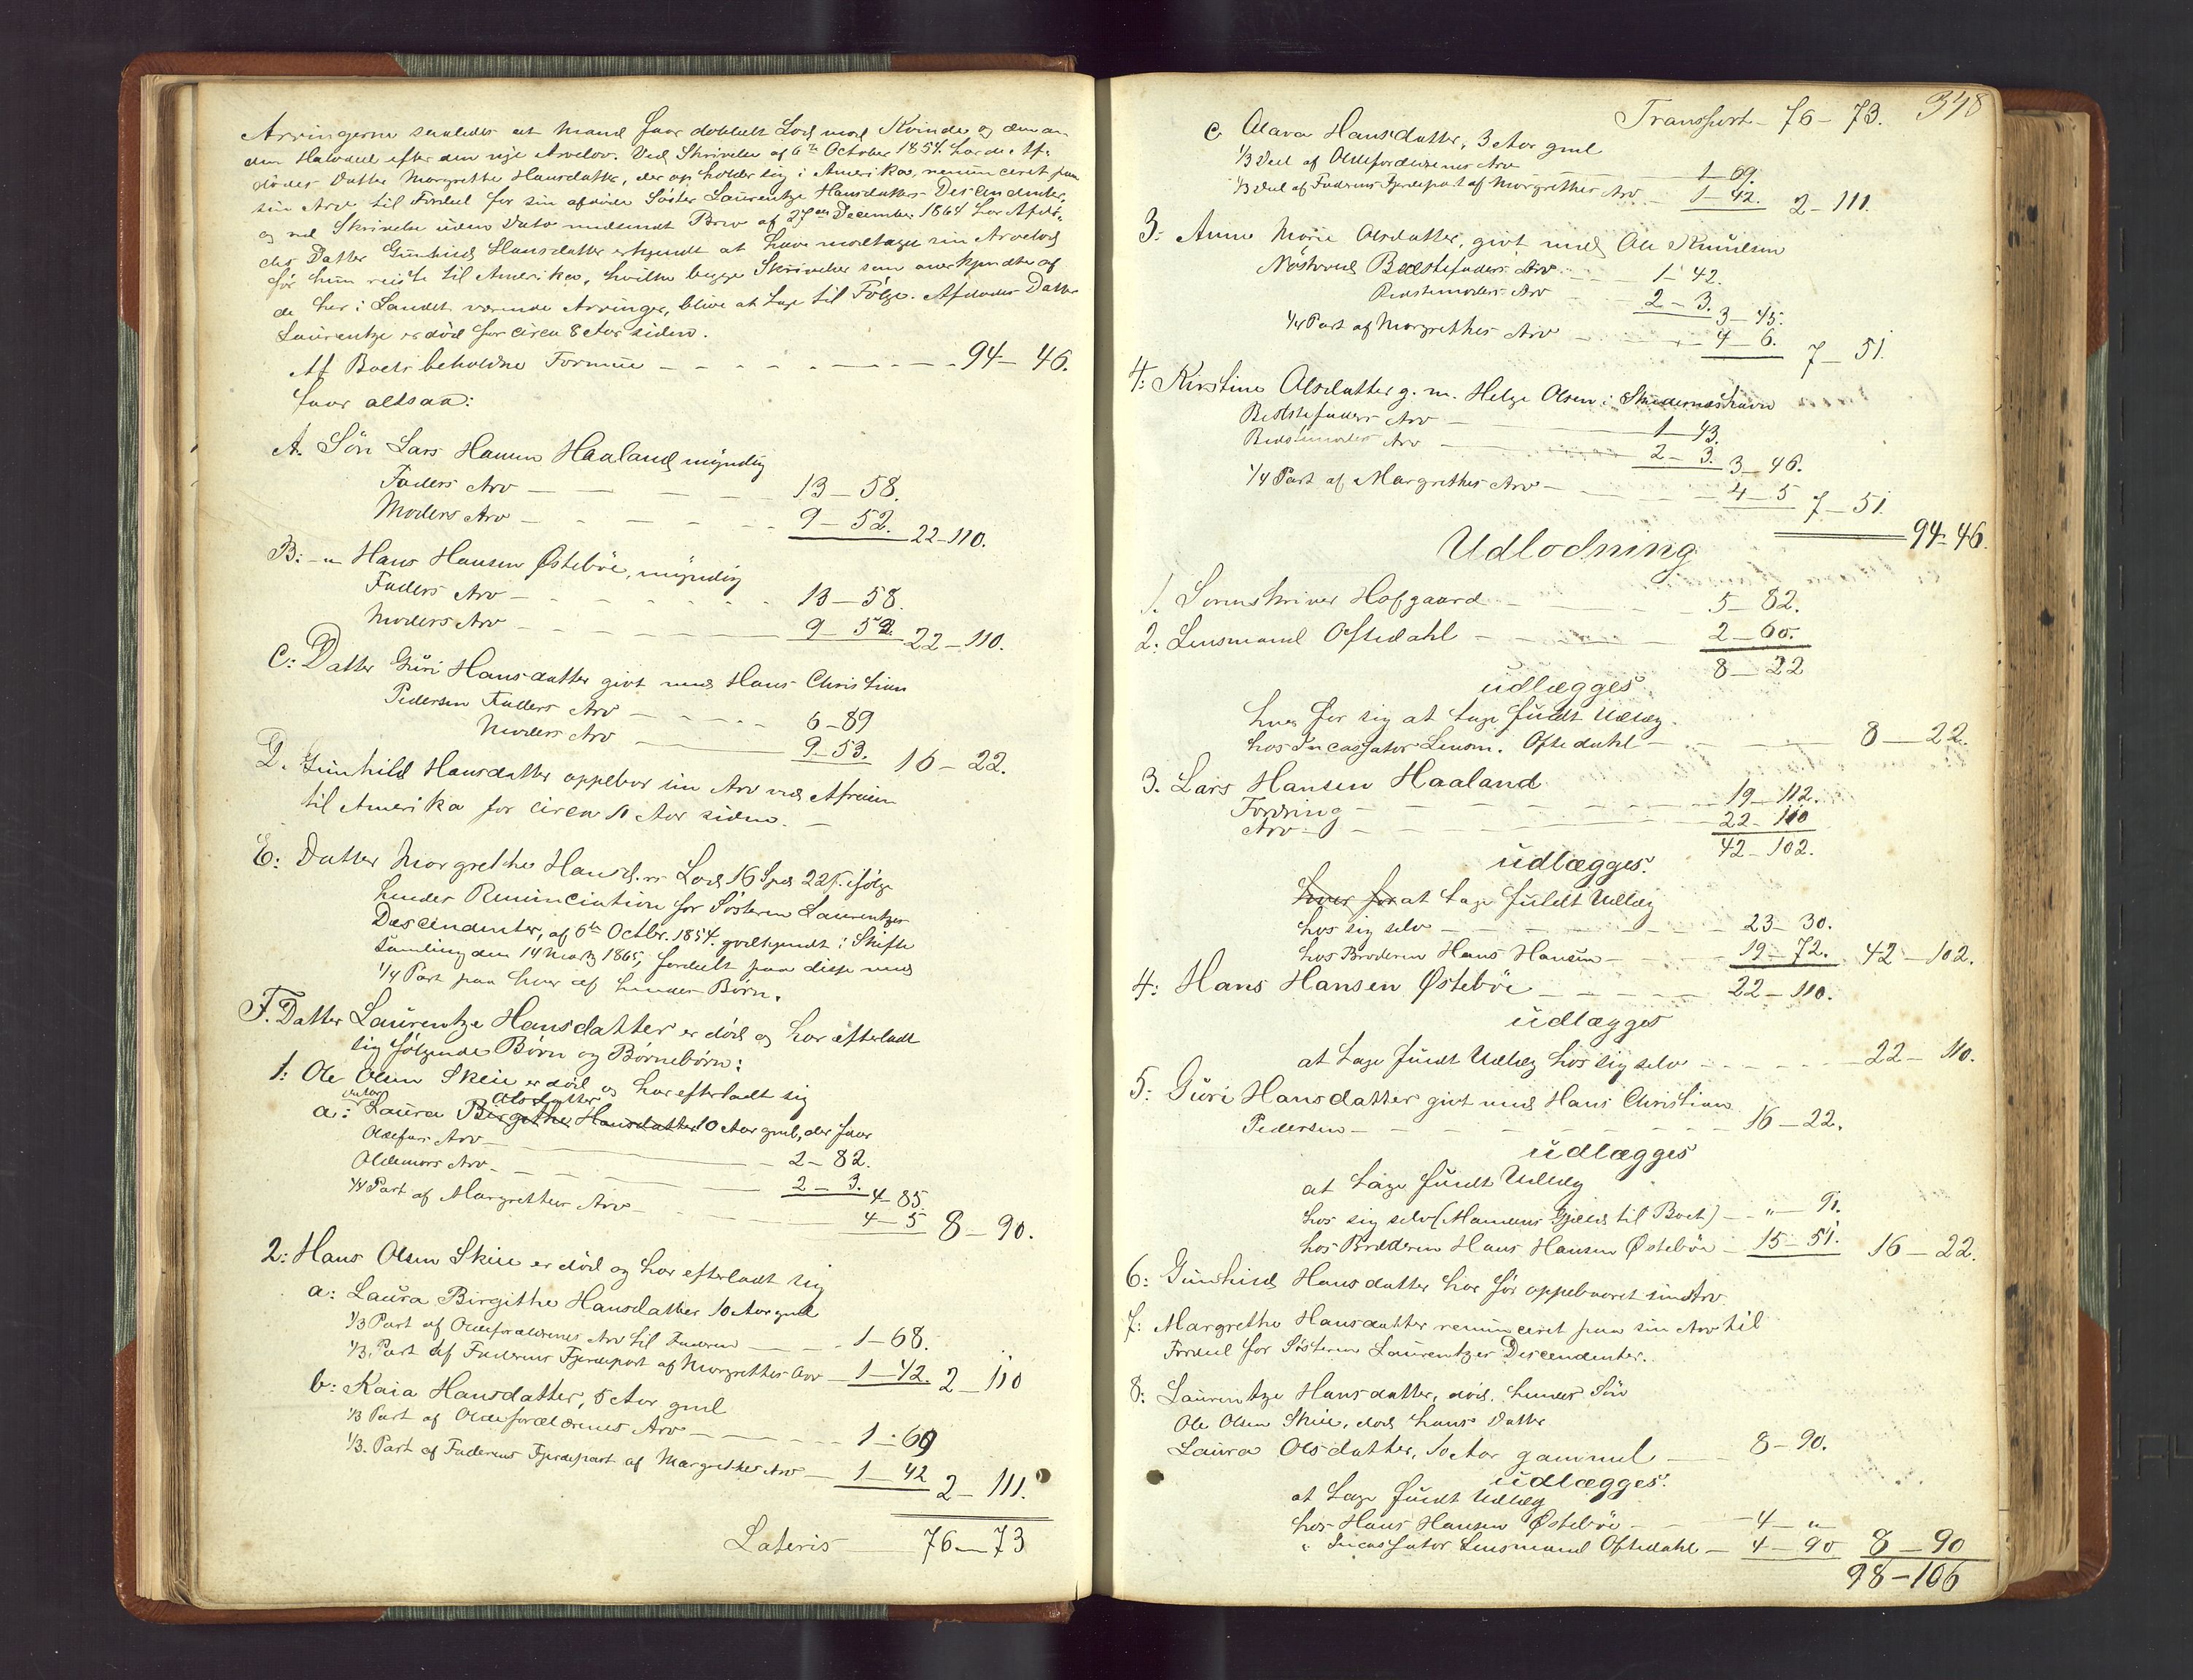 Arvingerne saaledes at Mand faar dobbelt Lod mod Kvinde og den an-
den Halvdeel efter den nye Arvelov. Ved Skrivelse af 6te October 1854 har de Af-
dødes Datter Margrethe Hansdatter, der opholder sig i Amerika, renunceret paa
sin Arv til Fordeel for sin afdøde Søster Laurentze Hansdatters Descendenter,
og ved Skrivelse uden Dato medsendt Brev af 27de December 1864 har Afdø-
des Datter Gunhild Hansdatter erkjendt at have modtaget sin Arvelod
før hun reiste til Amerika, hvilke begge Skrivelser som anerkjendte af
de her i Landet værende Arvinger, blive at tage til Følge. Afdødes Datter
Laurentze er død for circa 8 Aar siden.
Af Boets beholdne Formue 94 - 46.
faar altsaa:
A. Søn Lars Hansen Haaland myndig
Faders Arv 13 - 58.
Moders Arv 9 - 52. 22 - 110.
B: -"- Hans Hansen Østebøe, myndig
Faders Arv 13 - 58.
Moders Arv 9 - 52. 22 - 110.
C: Datter Guri Hansdatter givt med Hans Christian
Pedersen Faders Arv 6 - 89
Moders Arv 9 - 53. 16 - 22.
D. Gunhild Hansdatter oppebar sin Arv ved Afreisen
til Amerika for circa 11 Aar siden.
E: Datter Margrethe Hansd.rs Lod 16 Spd 22 s. ifølge
hendes Renunciation for Søsteren Laurentzes
Descendenter, af 6te Octbr. 1854. godkjendt i Skifte
samling den 14 Marts 1865, fordeelt paa disse med
1/4 Part paa hver af hendes Børn.
F. Datter Laurentze Hansdatter er død og har efterladt
sig følgende Børn og Børnebørn:
1: Ole Olsen Skeie er død og har efterladt sig
a: Datter Laura Olsdatter Birgithe Hansdatter 10 Aar gml, der faar
Oldefars Arv 2 - 82.
Oldemors Arv 2 - 3. 4 - 85.
1/4 Part af Margrethes Arv 4 - 5 8 - 90.
2: Hans Olsen Skeie er død og har efterladt sig
a: Laura Birgithe Hansdatter 10 Aar gml
1/3 Part af Oldeforældrenes Arv til Faderen 1 - 68.
1/3. Part af Faderens Fjerdepart af Margrethes Arv 1 - 42. 2 - 110
b: Kaia Hansdatter, 5 Aar gml
1/3 Part af Oldeforældrenes Arv 1 - 69
1/3. Part af Faderens Fjerdepart af Margrethes Arv 1 - 42 2 - 111.
Lateris 76 - 73
348
Transport 76 - 73.
c Olava Hansdatter, 3 Aar gml
1/3 Deel af Oldeforældrenes Arv 1 - 69.
1/3 Deel af Faderens Fjerdepart af Margrethes Arv 1 - 42. 2 - 111.
3: Anne Marie Olsdatter, givt med Ole Knudsen
Bedstefaders Arv 1 - 42.
Bedstemoders Arv 2 - 3. 3 - 45.
1/4 Part af Margrethes Arv 4 - 6. 7 - 51.
4: Kirstine Olsdatter g. m. Helge Olsen i Skudesneshavn
Bedstefaders Arv 1 - 43.
Bedstemoders Arv 2 - 3. 3 - 46.
1/4 Part af Margrethes Arv 4 - 5 7 - 51.
94 - 46.
Udlodning
1. Sorenskriver Hofgaard 5 - 82.
2. Lensmand Oftedahl 2 - 60.
8 - 22
udlægges
hver for sig at tage fuldt Udlæg
hos Incassator Lensm. Oftedahl 8 - 22.
3. Lars Hansen Haaland
Fordring 19 - 112.
Arv 22 - 110
42 - 102.
udlægges.
hver for at tage fuldt Udlæg
hos sig selv 23 - 30.
hos Broderen Hans Hansen 19 - 72. 42 - 102.
4: Hans Hansen Østebøe 22 - 110.
udlægges
at tage fuldt Udlæg hos sig selv 22 - 110.
5: Guri Hansdatter givt med Hans Christian
Pedersen 16 - 22.
udlægges
at tage fuldt Udlæg
hos sig selv (Mandens Gjæld til Boet) " - 91.
hos Broderen Hans Hansen Østebøe 15 - 51. 16 - 22.
6: Gunhild Hansdatter har før oppebaaret sin Arv.
7: Margrethe Hansdatter renunceret paa sin Arv til
Fordeel for Søsteren Laurentzes Descendenter.
8: Laurentze Hansdatter, død, hendes Søn
Ole Olsen Skeie, død hans Datter
Laura Olsdatter, 10 Aar gammel 8 - 90.
udlægges.
at tage fuldt Udlæg
hos Hans Hansen Østebøe 4 - "
" Incassator Lensmand Oftedahl 4 - 90 8 - 90
98 - 106